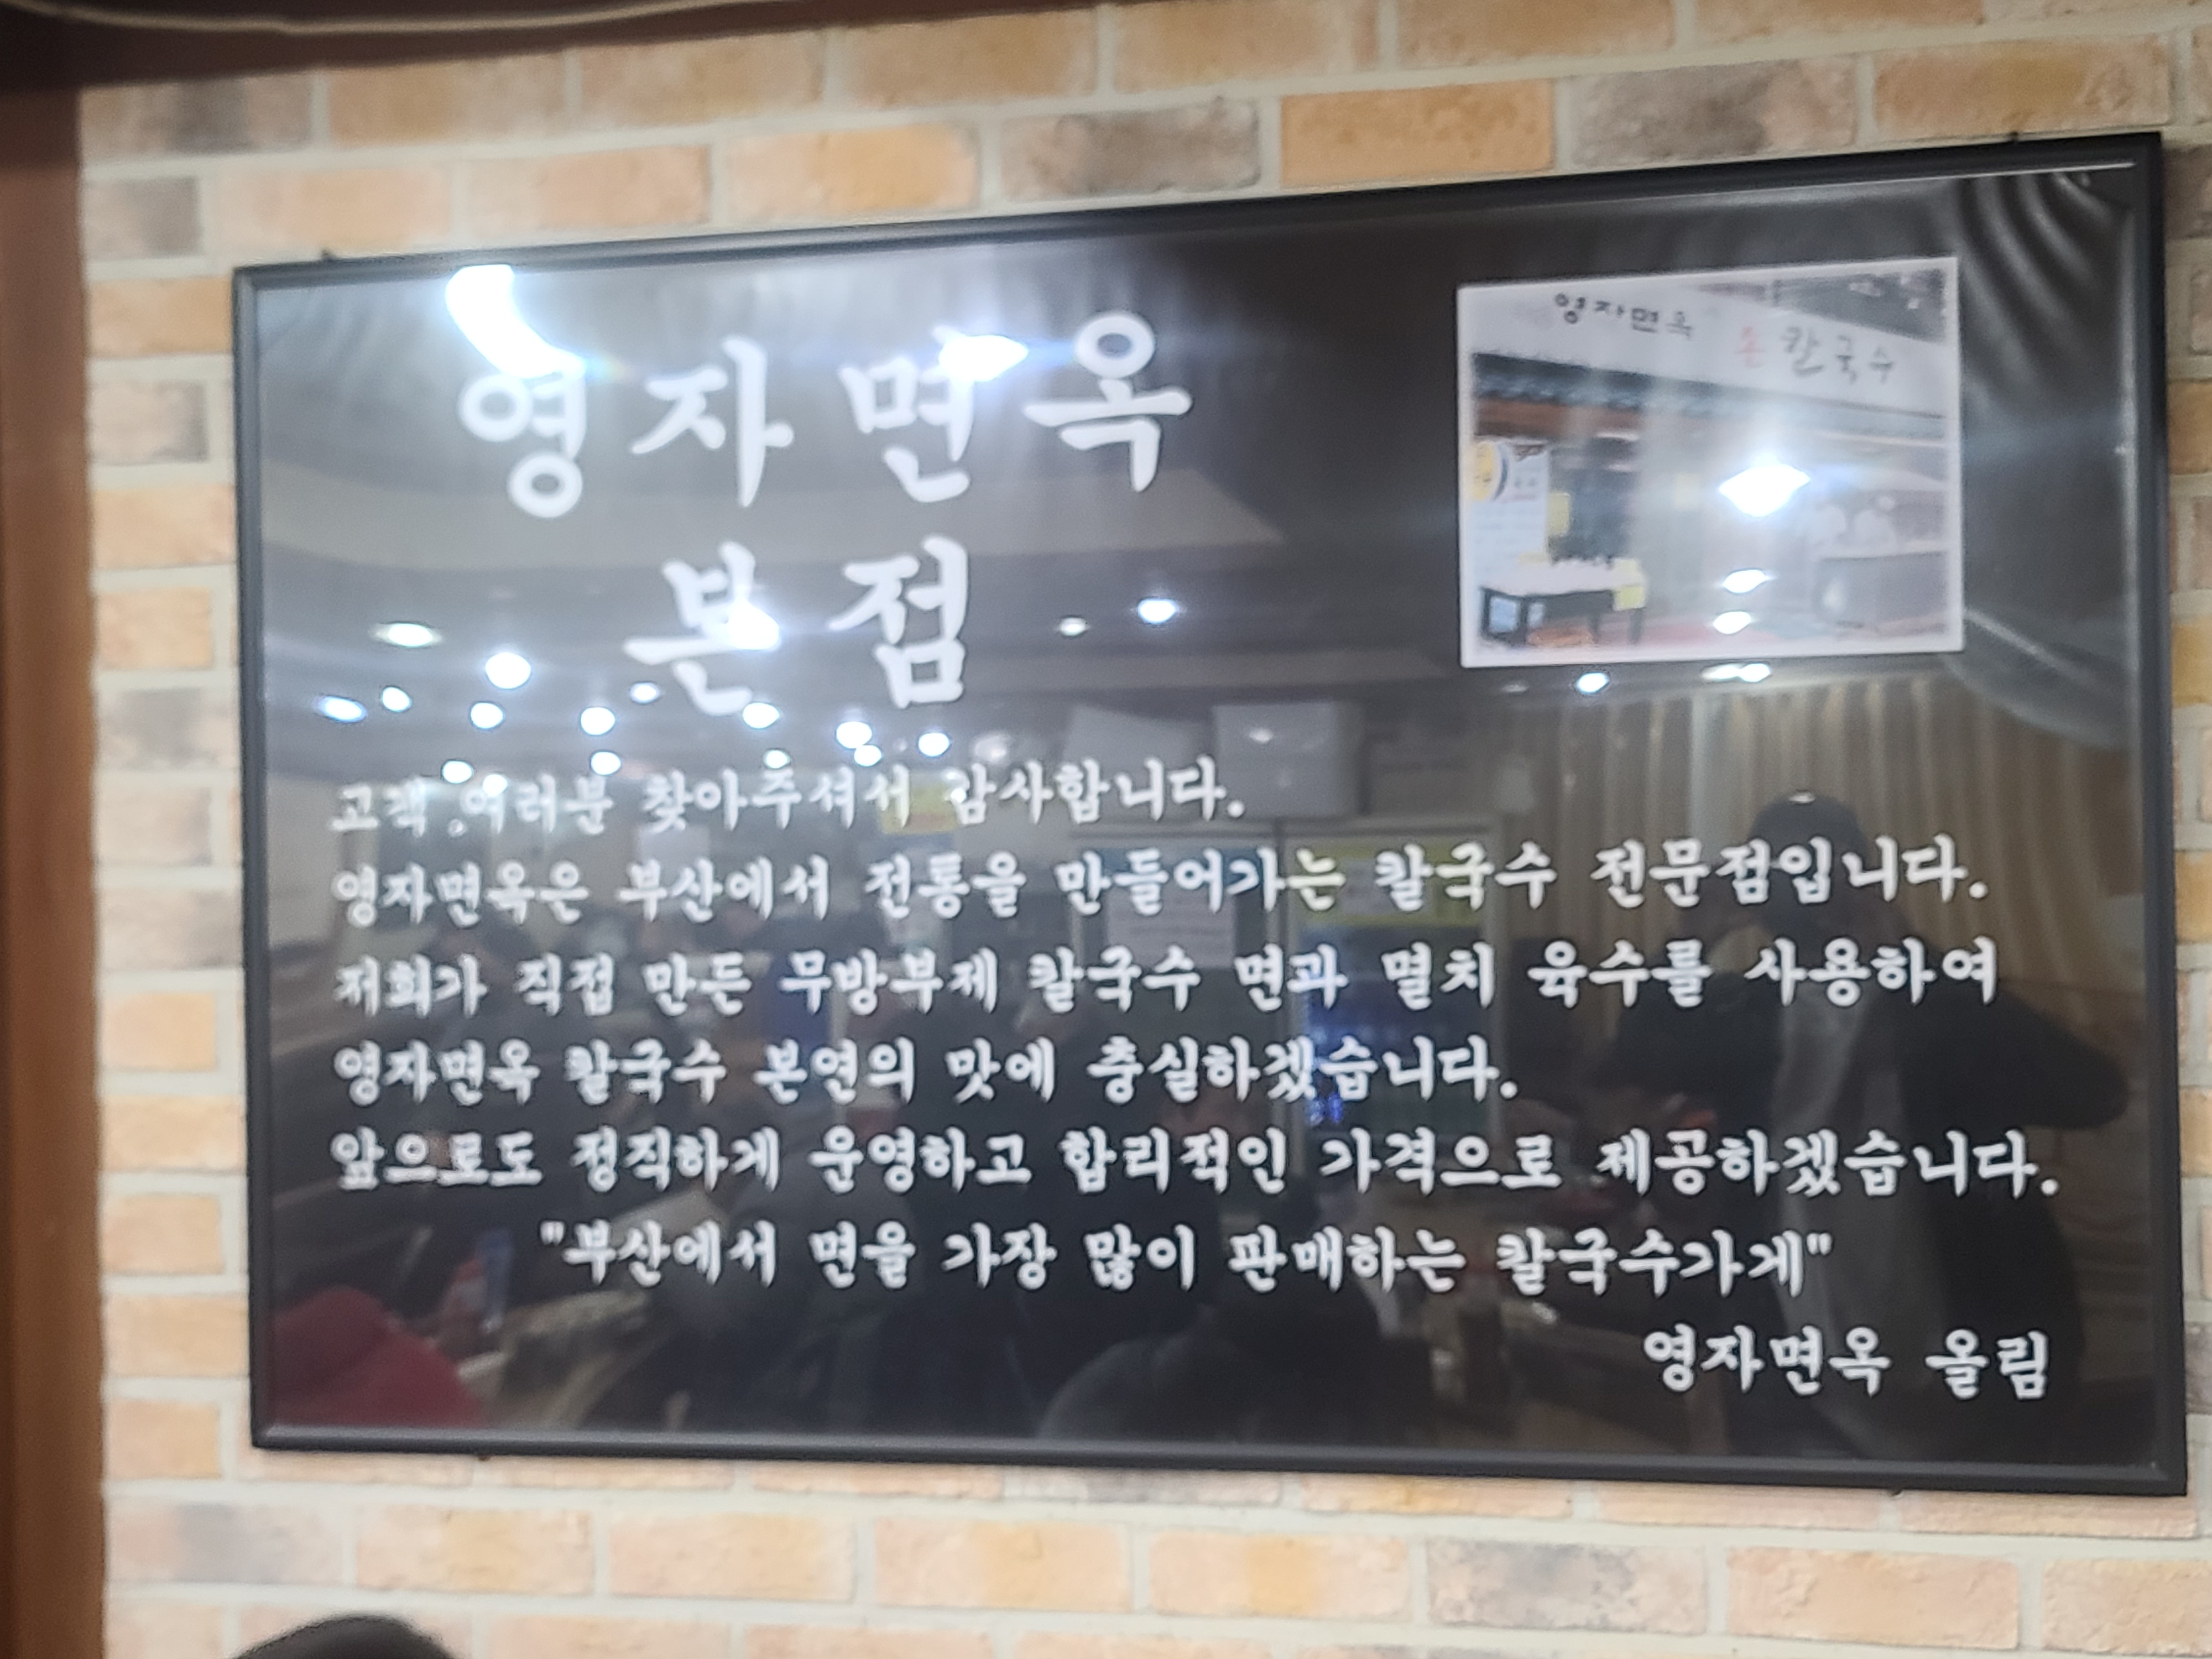 영자면옥
본점
영자면옥 손칼국수
고객 여러분 찾아주셔서 감사합니다.
영자면옥은 부산에서 전통을 만들어가는 칼국수 전문점입니다.
저희가 직접 만든 무방부제 칼국수 면과 멸치 육수를 사용하여
영자면옥 칼국수 본연의 맛에 충실하겠습니다.
앞으로도 정직하게 운영하고 합리적인 가격으로 제공하겠습니다.
"부산에서 면을 가장 많이 판매하는 칼국수가게"
영자면옥 올림